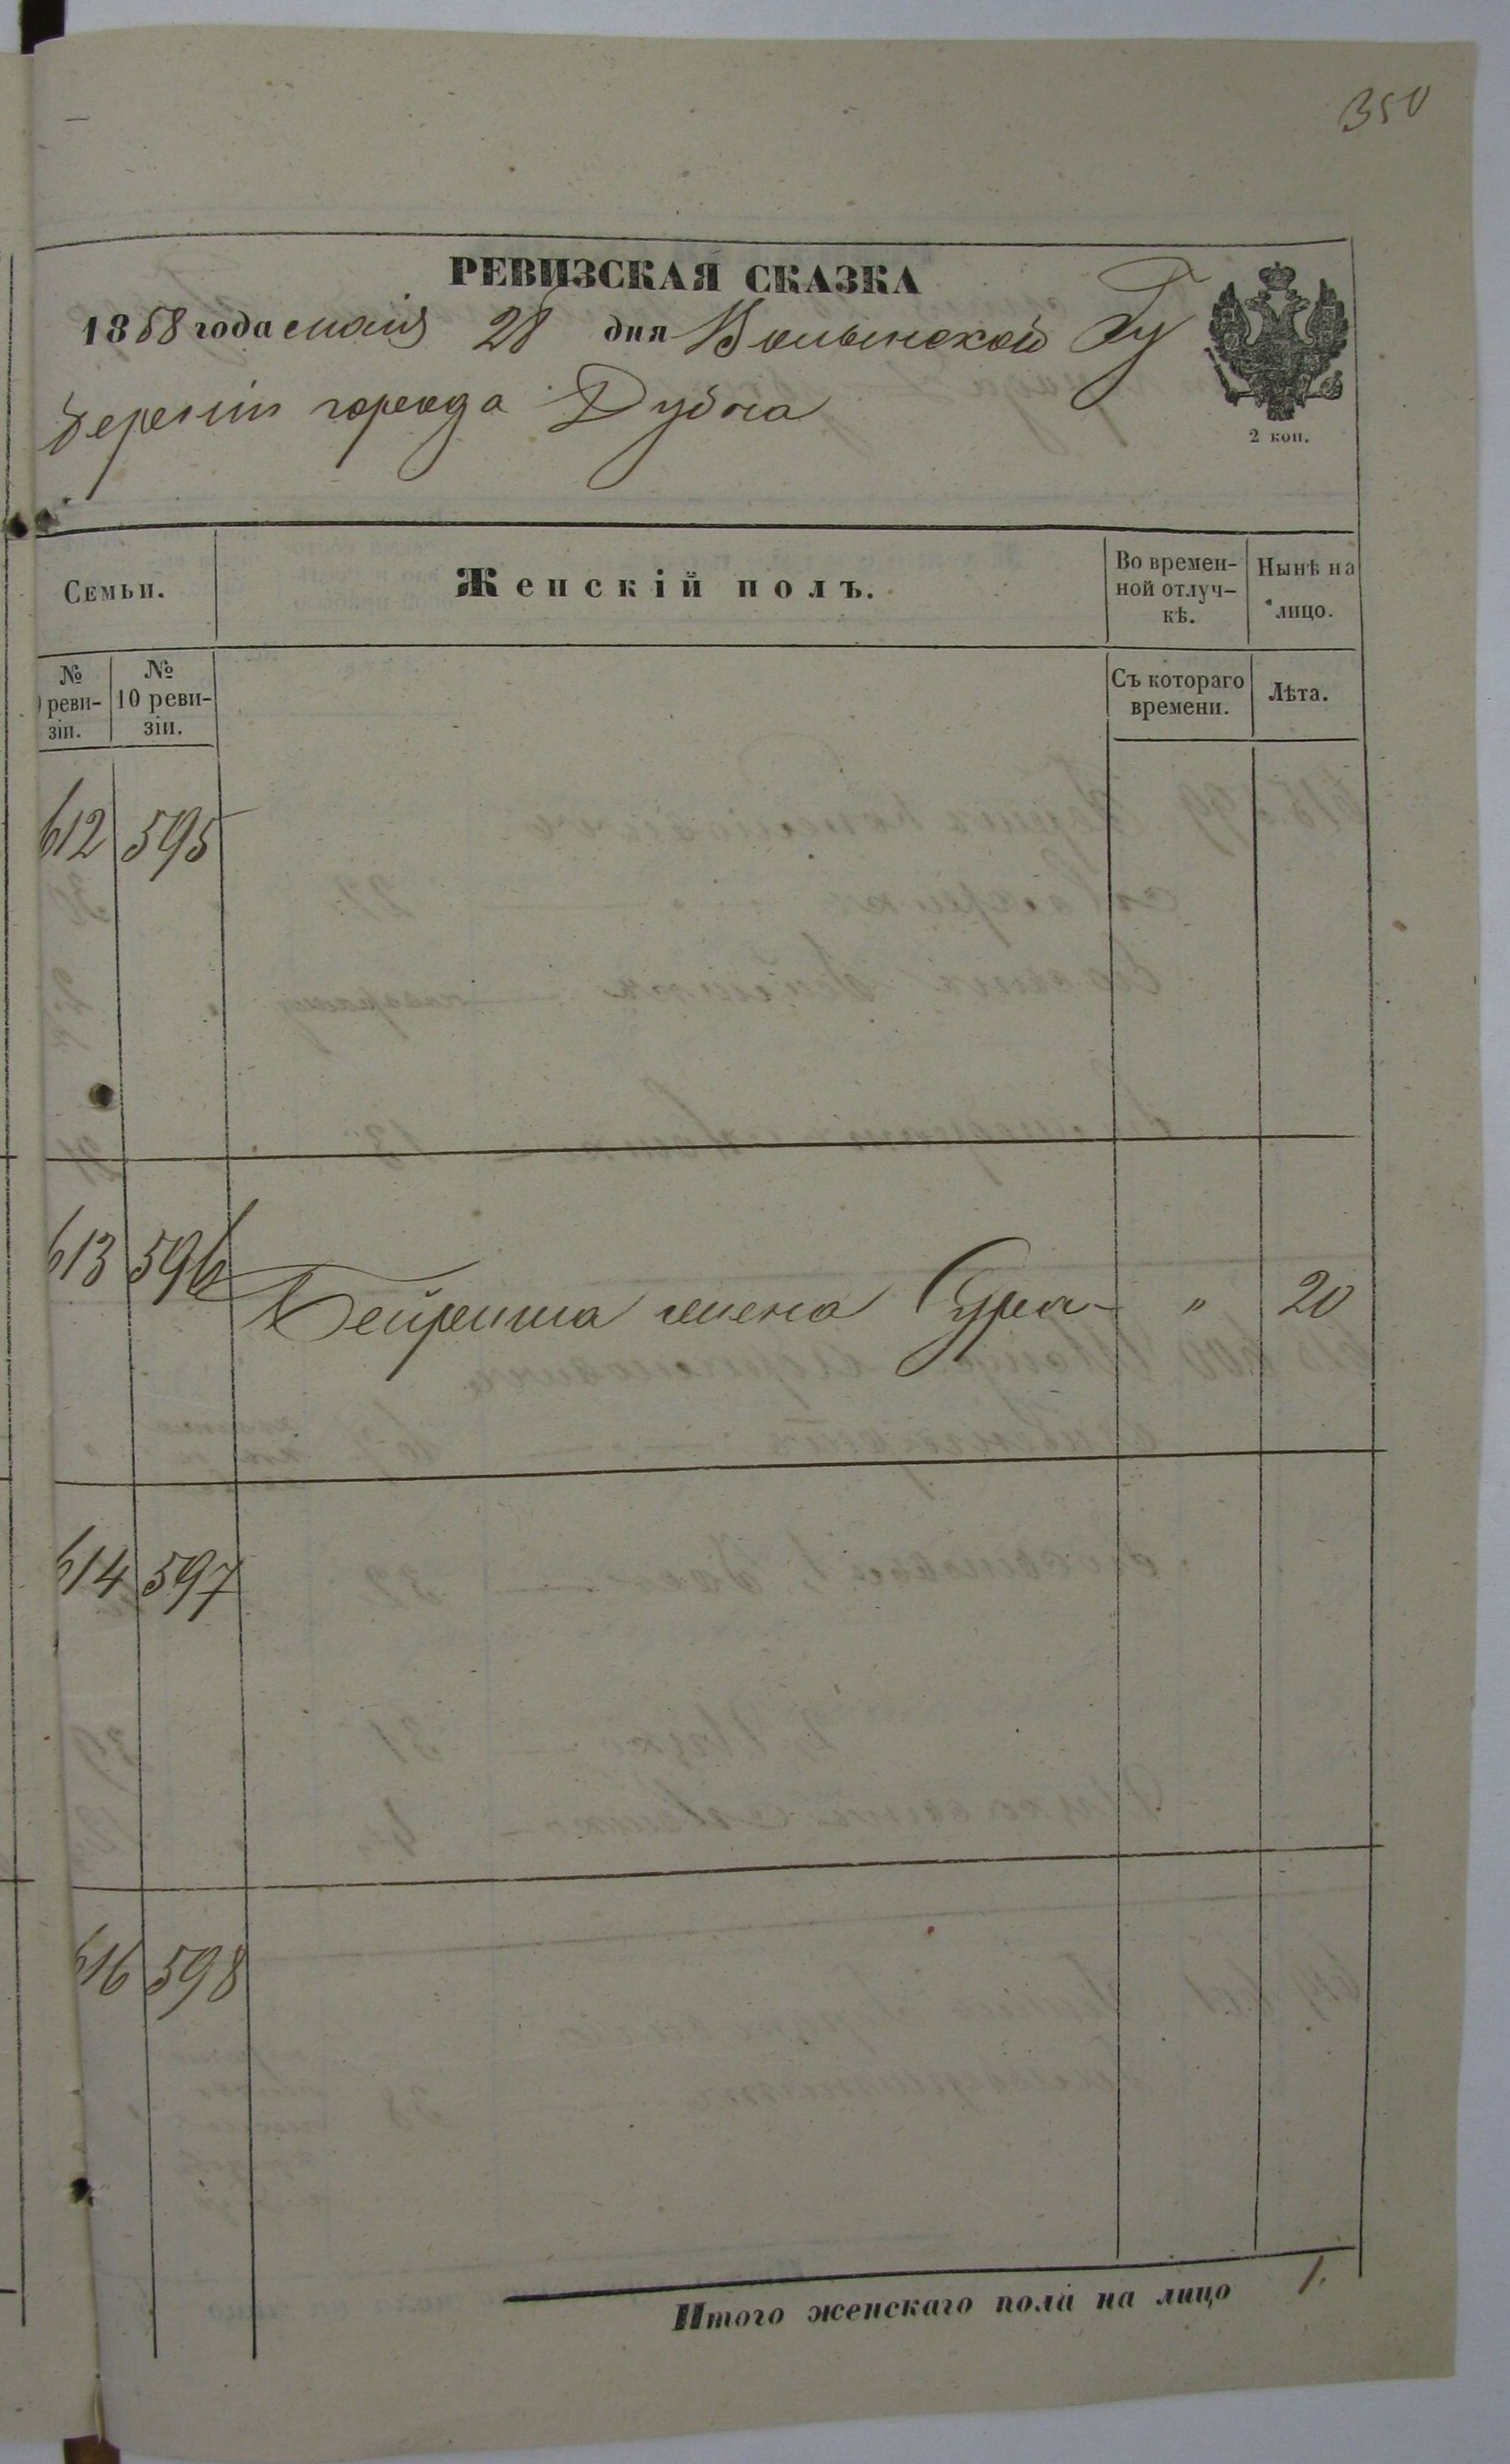 350
РЕВИЗСКАЯ СКАЗКА
1858 года маія 28 дня Волынской Гу
берніи города Дубна
2 коп.
Семьи.
Женскій полъ.
Во времен-
ной отлуч-
кѣ.
Нынѣ на
лицо.
№
реви-
зіи.
№
10 реви-
зіи.
Съ котораго
времени.
Лѣта.
612 595
613 596
Бейреиша жена Сура - " 20
614 597
616 598
Итого женскаго пола на лицо 1.